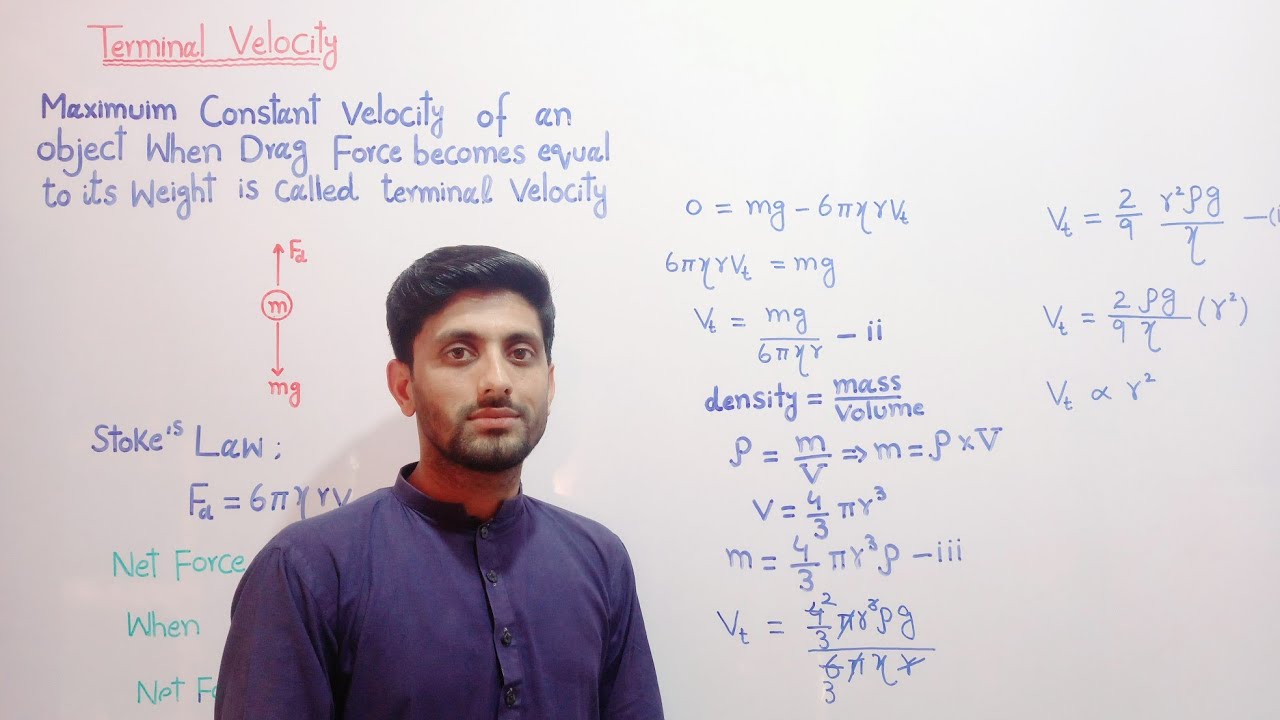 Terminal Velocity
Maximuim Constant Velocity of an
object When Drag Force becomes equal
to its Weight is called terminal Velocity
F_d
m
mg
Stoke's Law :
F_d = 6πηrV
Net Force
When
Net
0 = mg - 6πηrV_t
6πηrV_t = mg
V_t = mg / 6πηr - ii
density = mass / volume
ρ = m / V ⇒ m = ρ × V
V = 4/3 πr³
m = 4/3 πr³ρ - iii
V_t = 4² / 3 πr³ρg / 6πηr
3
V_t = 2/9 r²ρg / η - (i
V_t = 2ρg / 9η (r²)
V_t ∝ r²